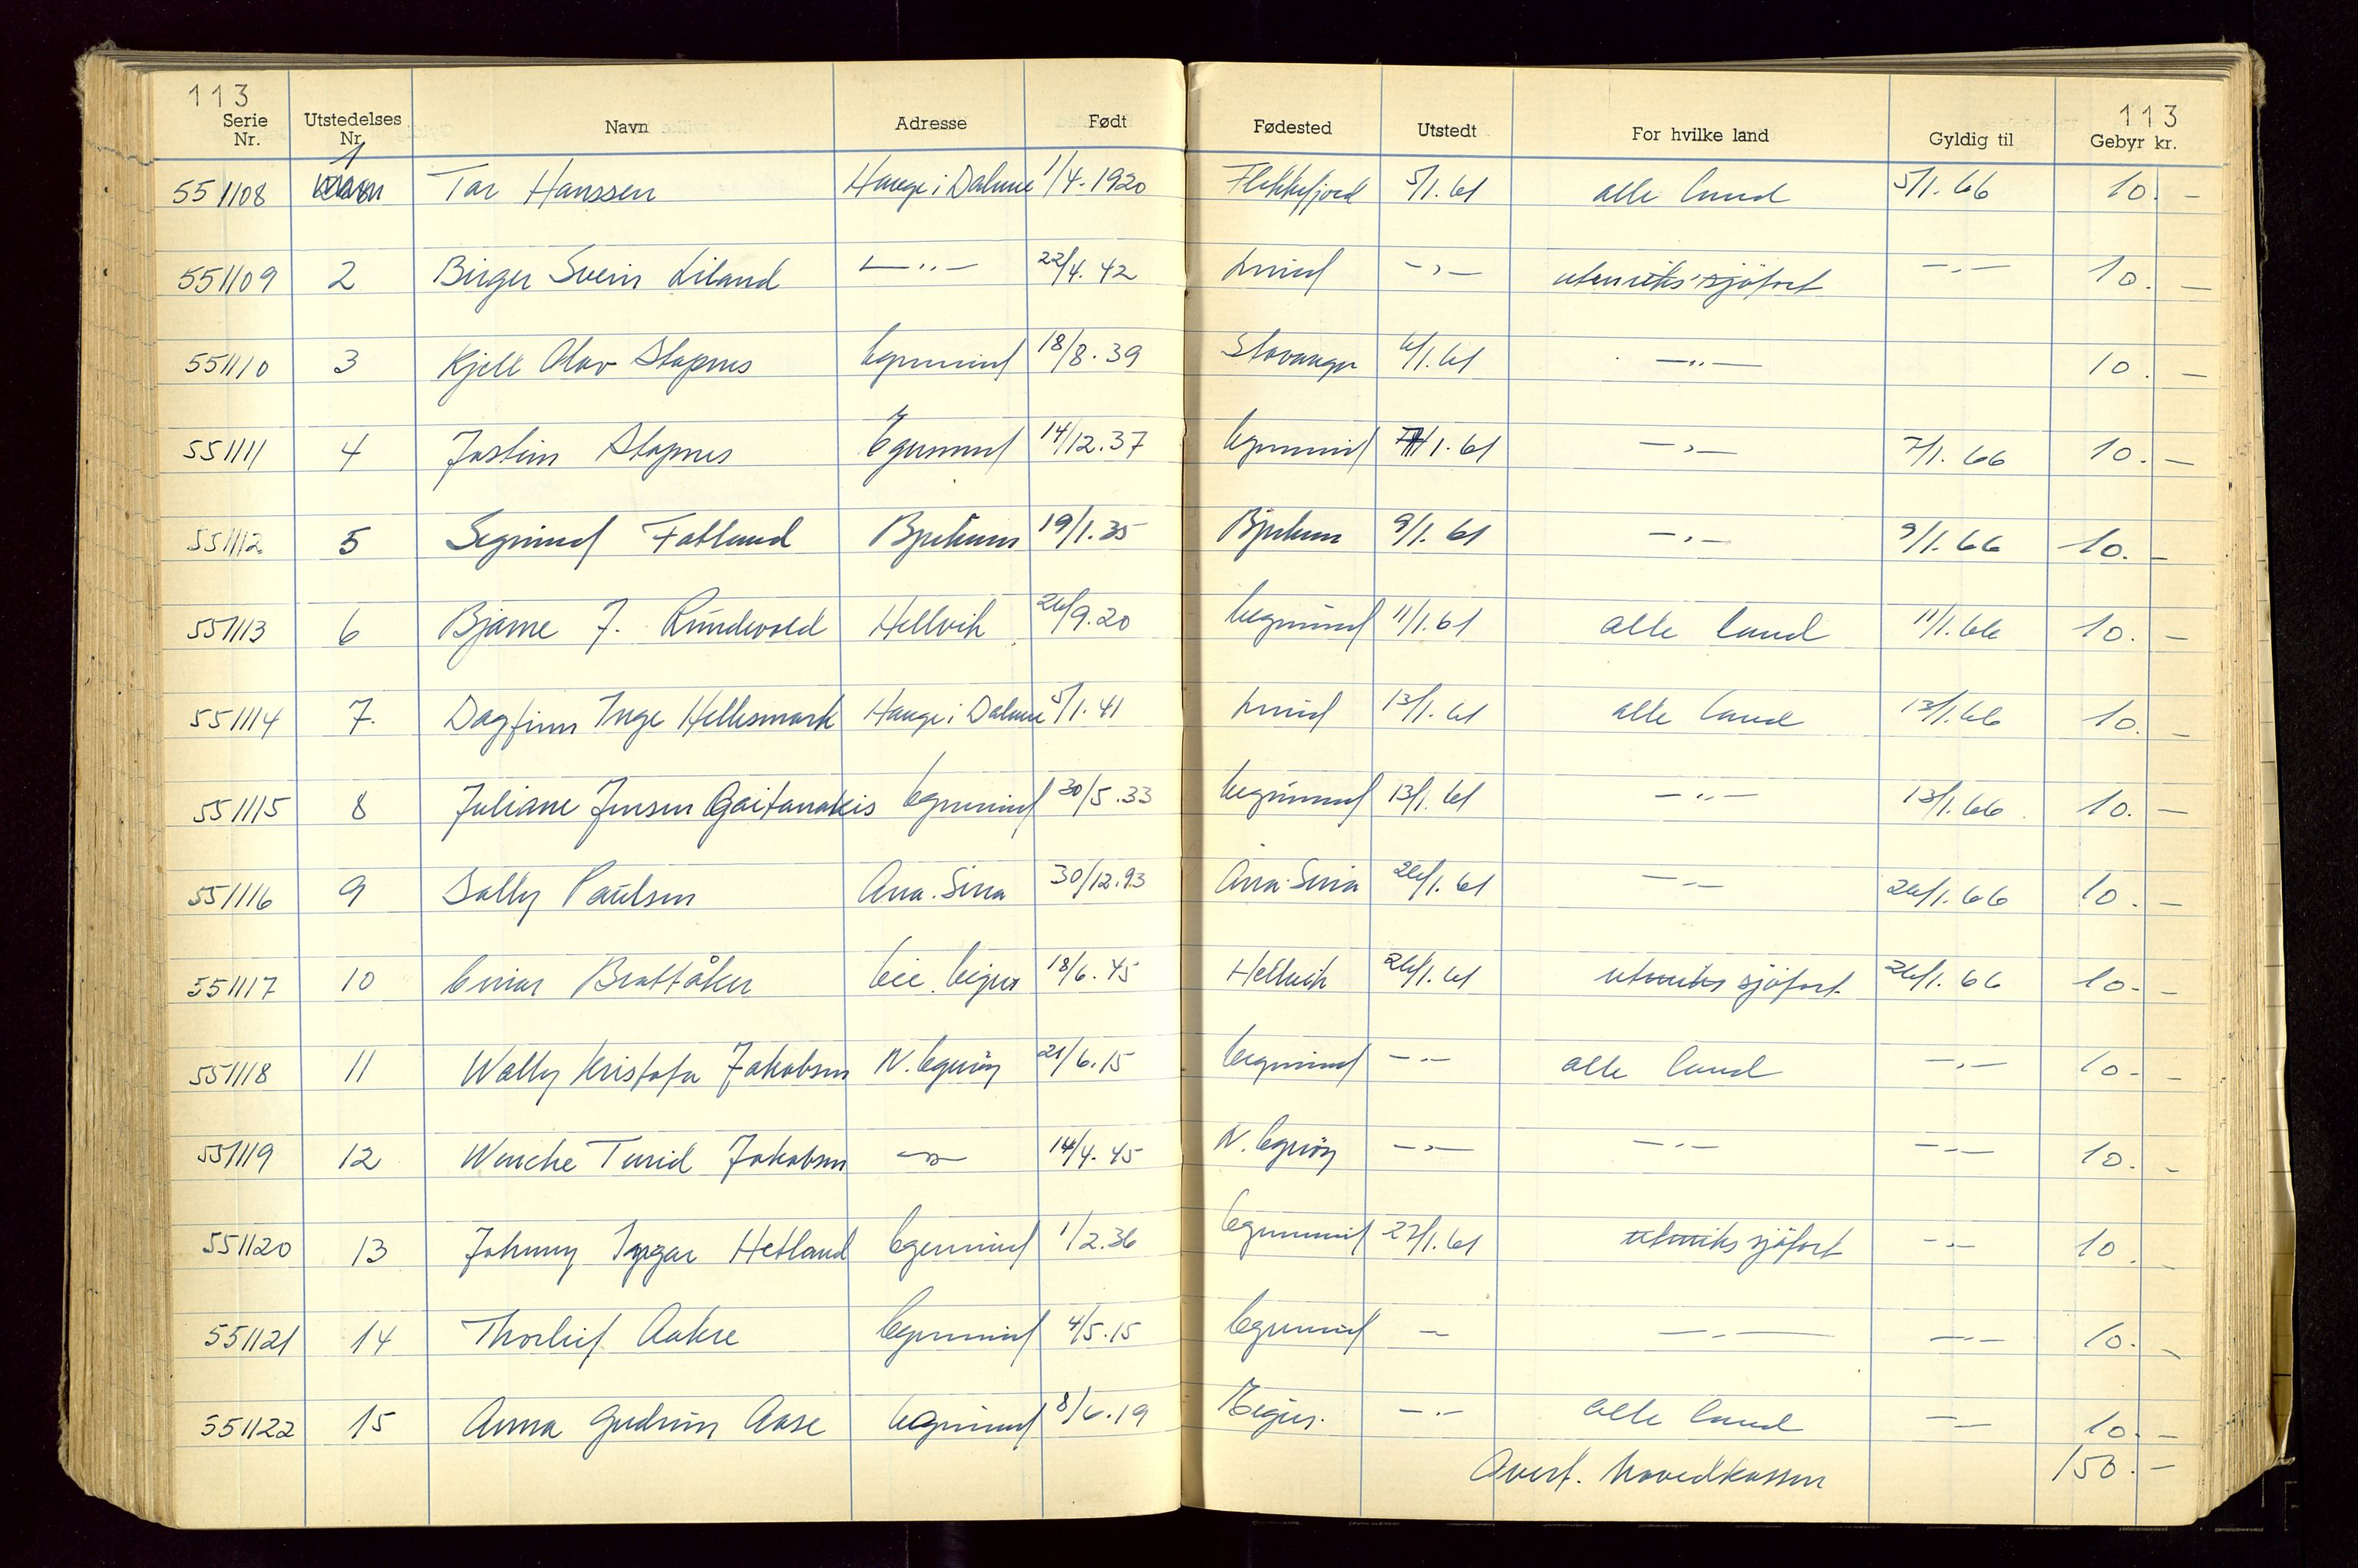 113 113
Serie Nr. Utstedelses Nr. Navn Adresse Født Fødested Utstedt For hvilke land Gyldig til Gebyr kr.
551108 1 Tor Hanssen Hauge i Dalane 1/4.1920 Flekkefjord 5/1.61 alle land 5/1.66 10.-
551109 2 Birger Svein Liland —〃— 22/4.42 Lund —〃— utenriks sjöfart —〃— 10.-
551110 3 Kjell Olav Stapnes Egersund 18/8.39 Stavanger 6/1.61 —〃— 10.-
551111 4 Jostein Stapnes Egersund 14/12.37 Egersund 7/1.61 —〃— 7/1.66 10.-
551112 5 Sigmund Fotland Bjerkreim 19/1.35 Bjerkreim 9/1.61 —〃— 9/1.66 10.-
551113 6 Bjarne J. Rundevold Hellvik 26/9.20 Egersund 11/1.61 alle land 11/1.66 10.-
551114 7. Dagfinn Inge Hellesmark Hauge i Dalane 5/1.41 Lund 13/1.61 alle land 13/1.66 10.-
551115 8 Juliane Jensen Gaitanakis Egersund 30/5.33 Egersund 13/1.61 —〃— 13/1.66 10.-
551116 9 Sally Paulsen Ana-Sira 30/12.93 Ana-Sira 26/1.61 —〃— 26/1.66 10.-
551117 10 Einar Brattåker Eie, Egers 18/6.45 Hellvik 26/1.61 utenriks sjöfart 26/1.66 10.-
551118 11 Wally Kristofa Jakobsen N. Egeröy 21/6.15 Egersund —〃— alle land —〃— 10.-
551119 12 Wenche Turid Jakobsen —〃— 14/4.45 N. Egeröy —〃— —〃— —〃— 10.-
551120 13 Johnny Ingar Hetland Egersund 1/2.36 Egersund 27/1.61 utenriks sjöfart —〃— 10.-
551121 14 Thorleif Aakre Egersund 4/5.15 Egersund — —〃— —〃— 10.-
551122 15 Anna Gudrun Aase Egersund 8/6.19 Egers. —〃— alle land —〃— 10.-
Overf. hovedkassen 150.-